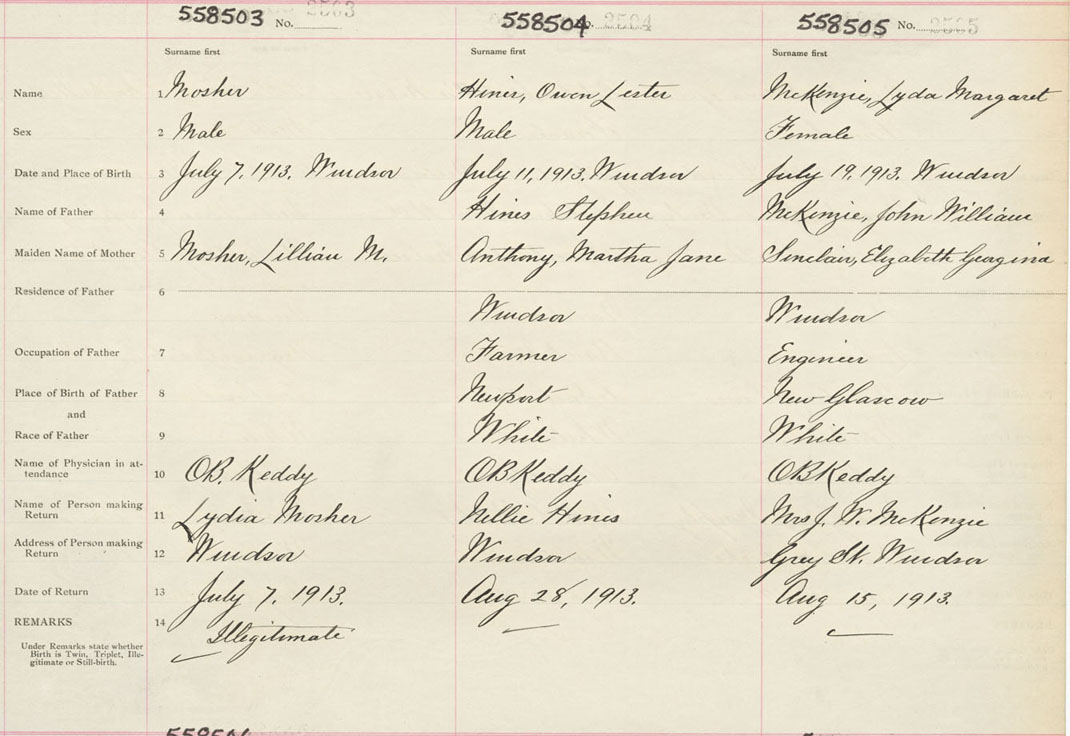 558503 No. 2503 558504 No. 2504 558505 No. 2505
Surname first Surname first Surname first
Name 1 Mosher Hines, Owen Lester McKenzie, Lyda Margaret
Sex 2 Male Male Female
Date and Place of Birth 3 July 7, 1913. Windsor July 11, 1913. Windsor July 19, 1913. Windsor
Name of Father 4 Hines Stephen McKenzie, John William
Maiden Name of Mother 5 Mosher, Lillian M. Anthony, Martha Jane Sinclair, Elizabeth Georgina
Residence of Father 6
Windsor Windsor
Occupation of Father 7 Farmer Engineer
Place of Birth of Father 8 Newport New Glascow
and
Race of Father 9 White White
Name of Physician in at-
tendance 10 OB. Keddy OB Keddy OB Keddy
Name of Person making
Return 11 Lydia Mosher Nellie Hines Mrs J. W. McKenzie
Address of Person making
Return 12 Windsor Windsor Grey St. Windsor
Date of Return 13 July 7, 1913. Aug 28, 1913. Aug 15, 1913.
REMARKS 14 Illegitimate
Under Remarks state whether
Birth is Twin, Triplet, Ille-
gitimate or Still-birth.